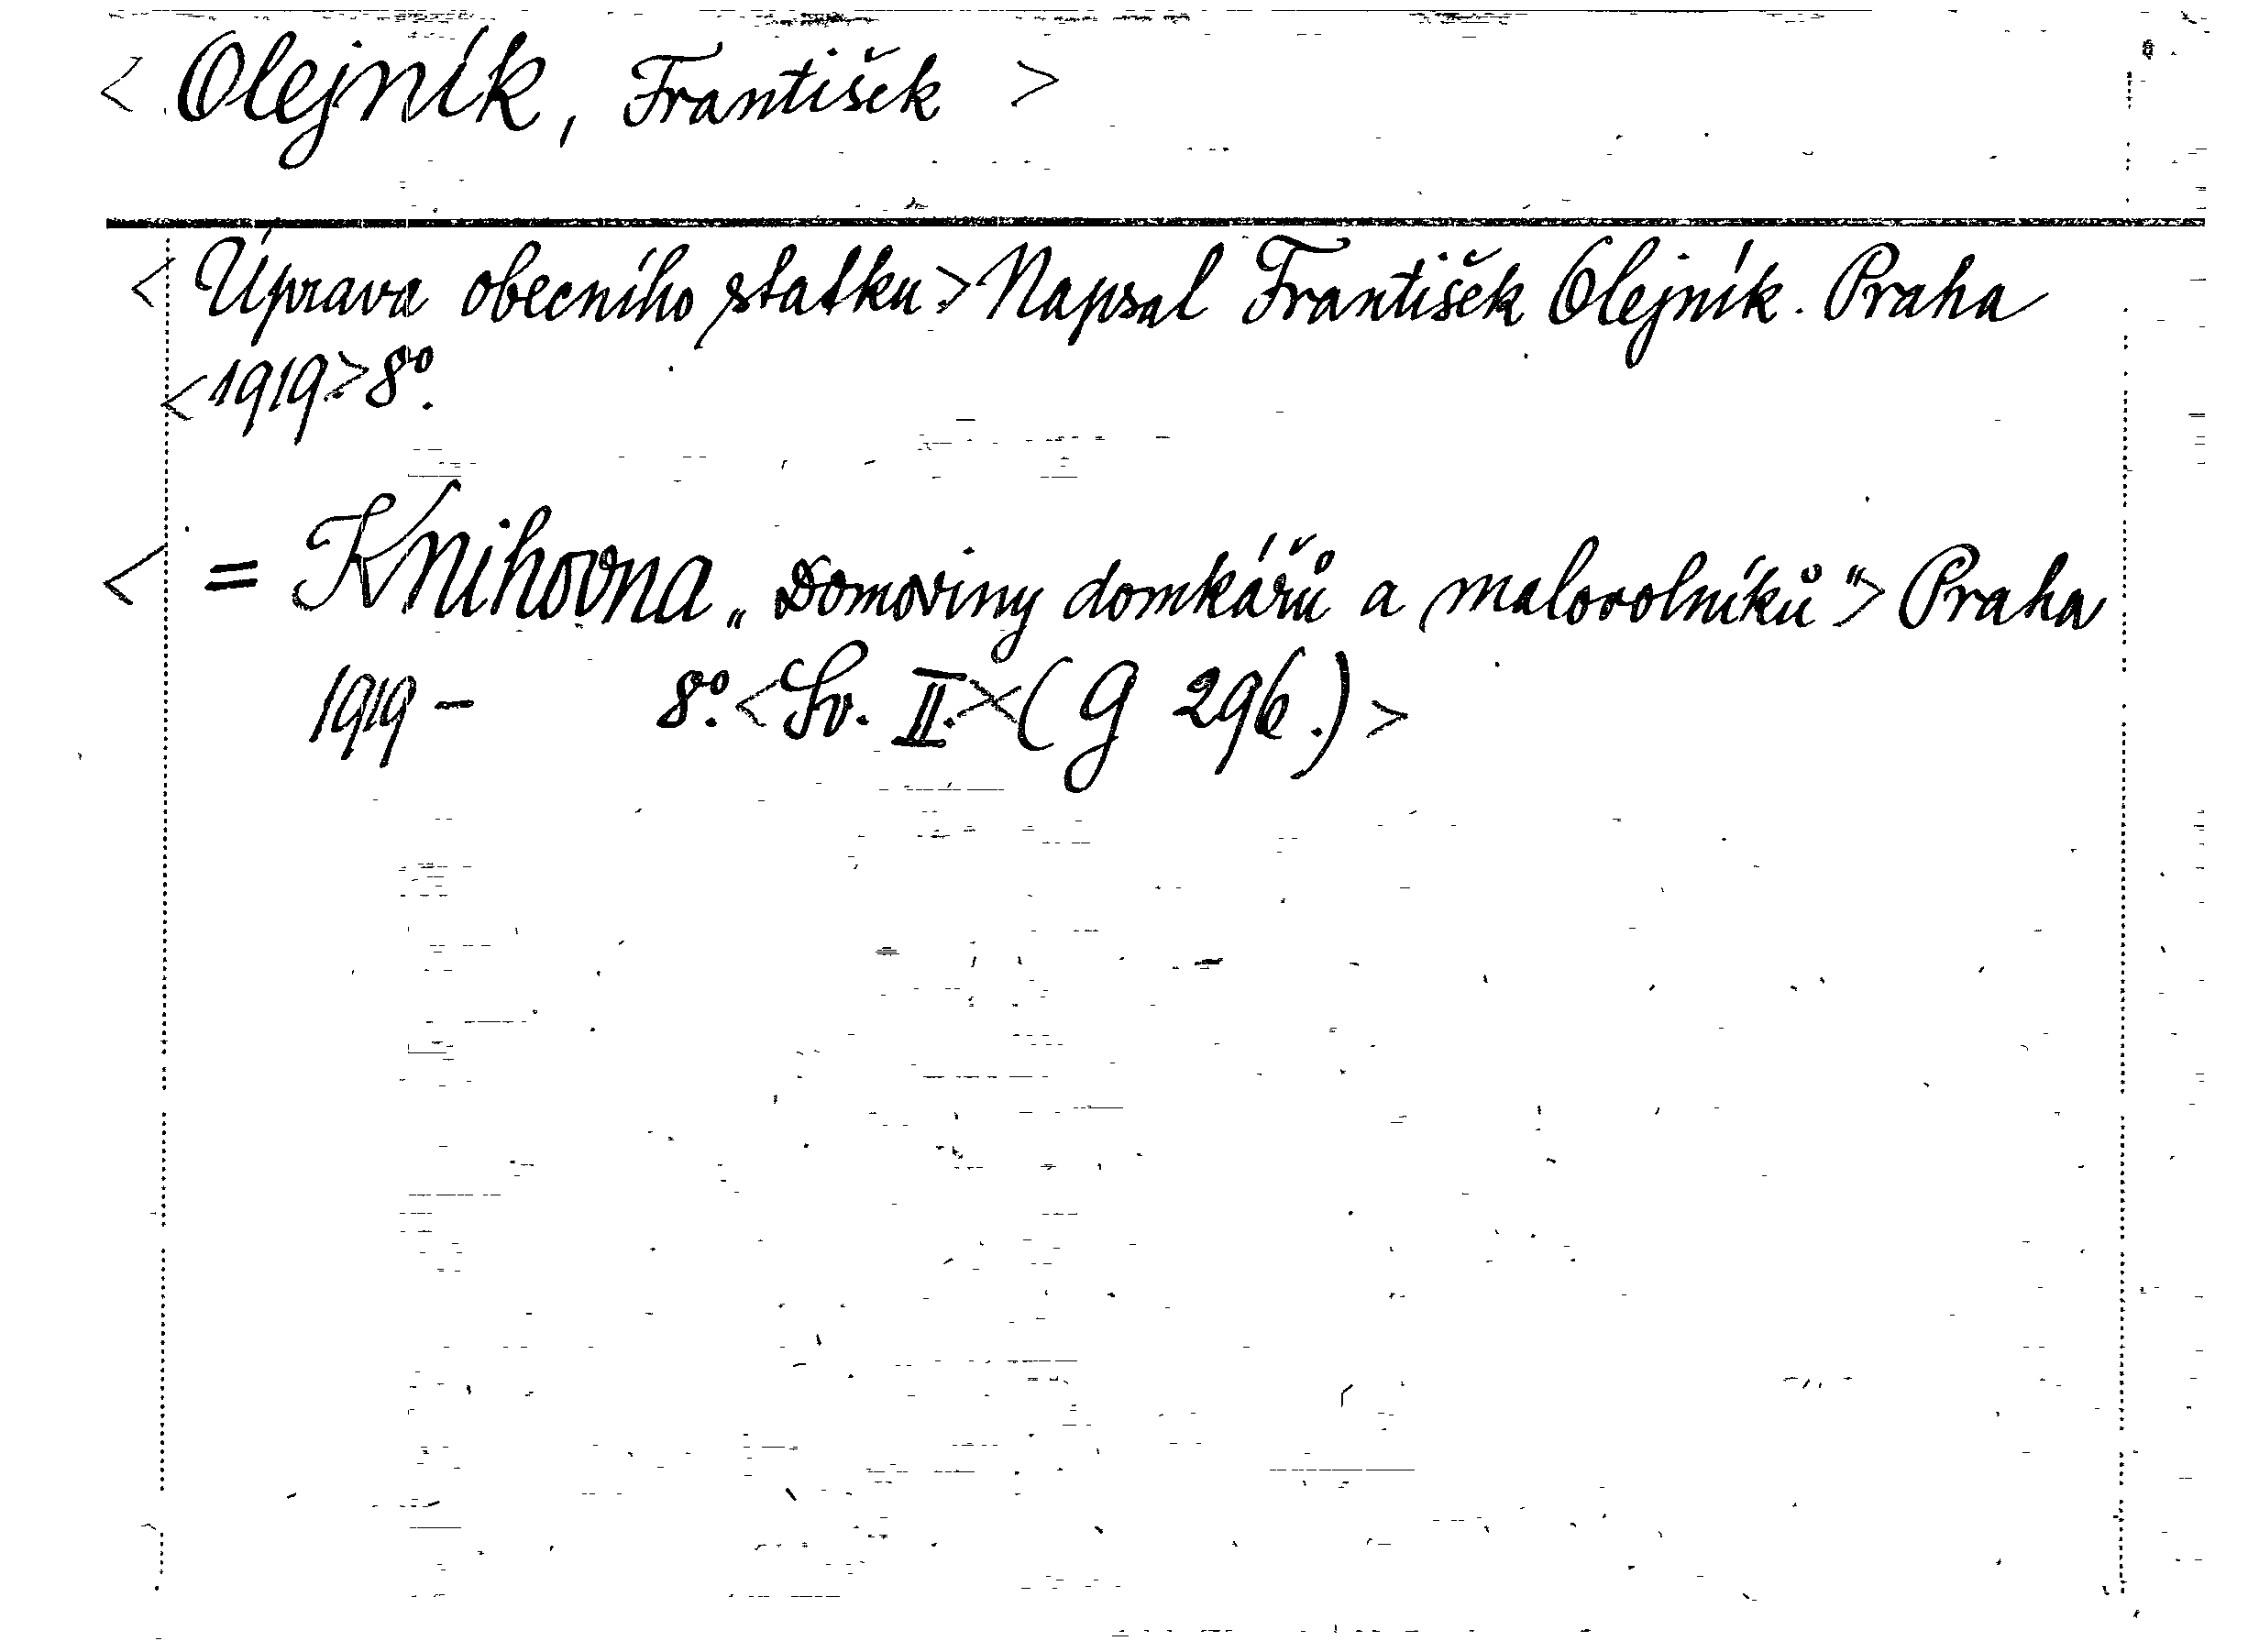 < Olejník, František >
< Úprava obecního statku > Napsal František Olejník. Praha
< 1919 > 8°.
< = Knihovna „Domoviny domkářů a malorolníků“ > Praha
1919 - 8°. < Sv. II. > < (G 296.) >